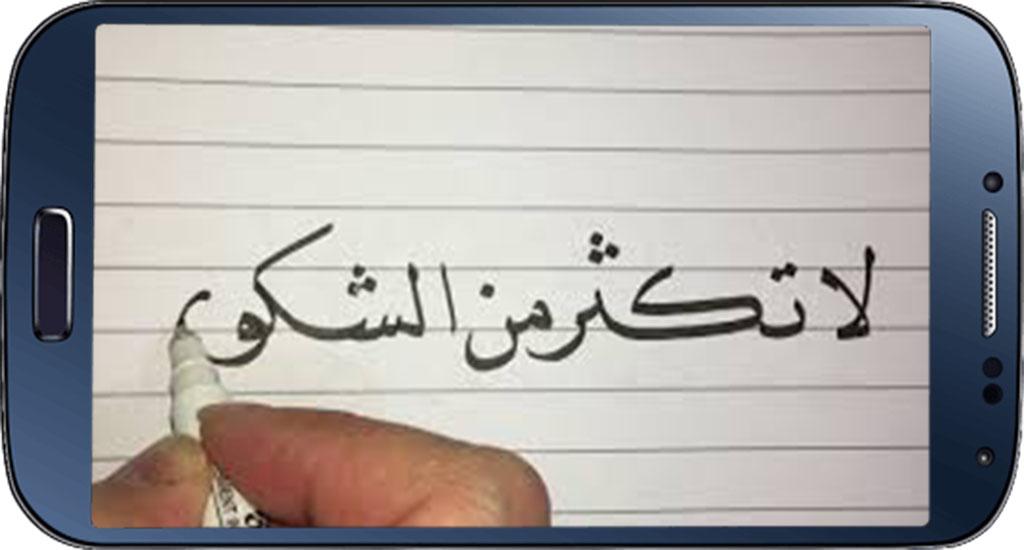 لا تكثر من الشكوى